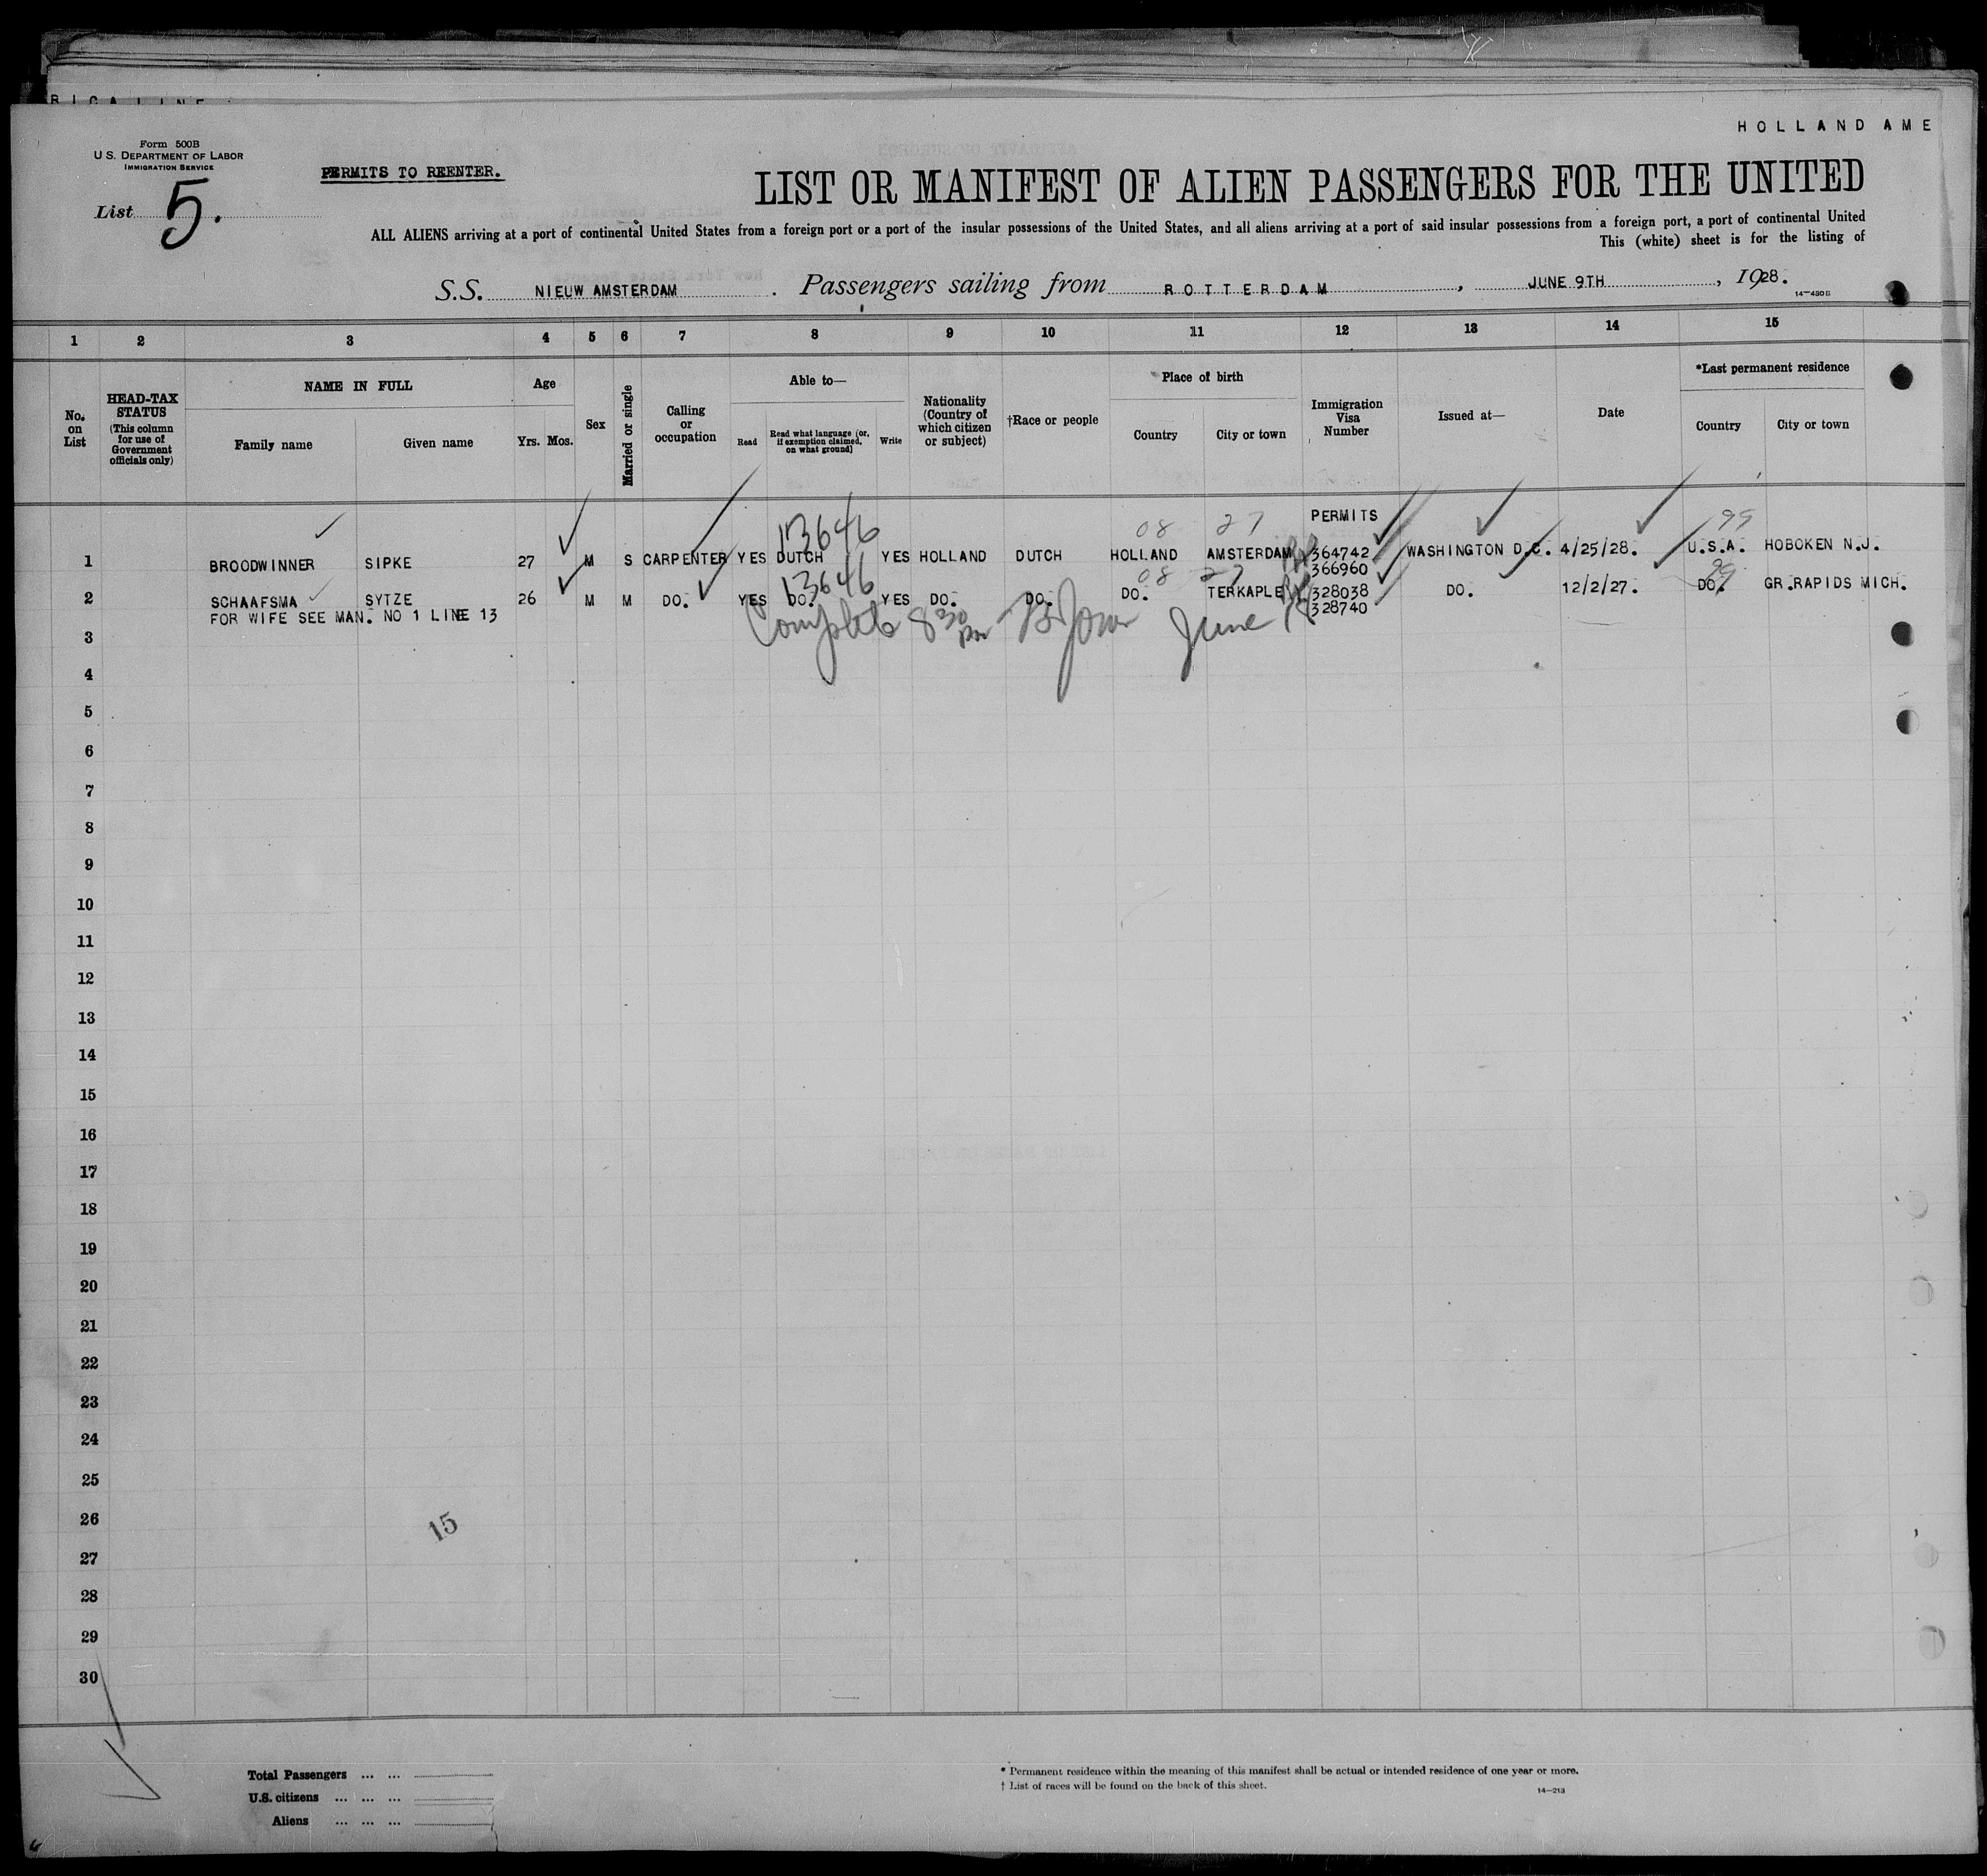 RICA LINE
HOLLAND AME
Form 500B
U.S. DEPARTMENT OF LABOR
IMMIGRATION SERVICE
PERMITS TO REENTER.
List 5.
LIST OR MANIFEST OF ALIEN PASSENGERS FOR THE UNITED
ALL ALIENS arriving at a port of continental United States from a foreign port or a port of the insular possessions of the United States, and all aliens arriving at a port of said insular possessions from a foreign port, a port of continental United
This (white) sheet is for the listing of
S.S. NIEUW AMSTERDAM. Passengers sailing from ROTTERDAM, JUNE 9TH, 1928.
1 2 3 4 5 6 7 8 9 10 11 12 13 14 15
No. on List
HEAD-TAX STATUS (This column for use of Government officials only)
NAME IN FULL
Family name Given name
Age
Yrs. Mos.
Sex
Married or single
Calling or occupation
Able to—
Read
Read what language [or, if exemption claimed, on what ground]
Write
Nationality (Country of which citizen or subject)
†Race or people
Place of birth
Country City or town
Immigration Visa Number
Issued at—
Date
*Last permanent residence
Country City or town
13646 08 27 PERMITS 99
1 BROODWINNER SIPKE 27 M S CARPENTER YES DUTCH YES HOLLAND DUTCH HOLLAND AMSTERDAM 364742 WASHINGTON D.C. 4/25/28. U.S.A. HOBOKEN N.J.
366960
13646 08 27 99
2 SCHAAFSMA SYTZE 26 M M DO. YES DO. YES DO. DO. DO. TERKAPLE 328038 DO. 12/2/27. DO. GR.RAPIDS MICH.
FOR WIFE SEE MAN. NO 1 LINE 13 328740
Complete 8 30 June
3
4
5
6
7
8
9
10
11
12
13
14
15
16
17
18
19
20
21
22
23
24
25
26
15
27
28
29
30
Total Passengers ... ...
U.S. citizens ... ... ...
Aliens ... ... ...
* Permanent residence within the meaning of this manifest shall be actual or intended residence of one year or more.
† List of races will be found on the back of this sheet.
14—213